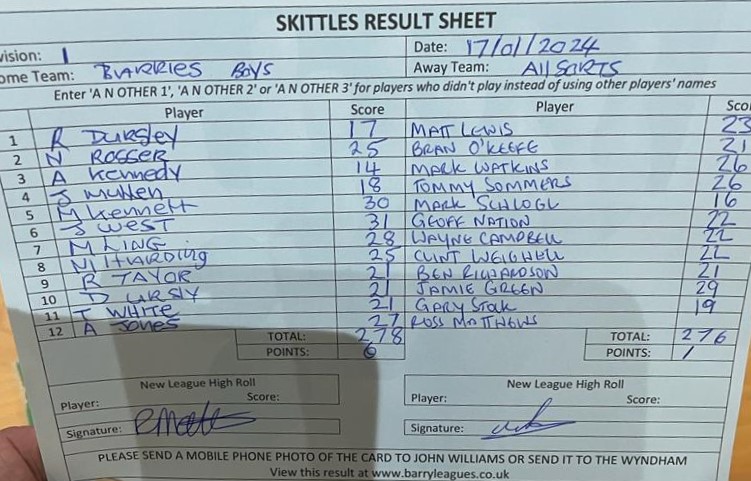 SKITTLES RESULT SHEET
vision: 1 Date: 17/01/2024
ome Team: BARRIES BOYS Away Team: AllSORTS
Enter 'A N OTHER 1', 'A N OTHER 2' or 'A N OTHER 3' for players who didn't play instead of using other players' names
Player Score Player Sco
1 R DURSLEY 17 MATT LEWIS 23
2 N ROSSER 25 BRAN O'KEEFE 21
3 A Kennedy 14 MARK WATKINS 26
4 J Mullen 18 TOMMY SOMMERS 26
5 M Kennett 30 MARK SCHLOGL 16
6 J WEST 31 GEOFF NATION 22
7 M LING 28 WAYNE CAMPBELL 22
8 N HARDING 25 CLINT WEIGHELL 22
9 R TAYOR 21 BEN RICHARDSON 21
10 D URSLY 21 JAMIE GREEN 29
11 T WHITE 21 GARY Stok 19
12 A Jones 27 ROSS MATTHEWS
TOTAL: 278 TOTAL: 276
POINTS: 6 POINTS: 1
New League High Roll New League High Roll
Player: Score: Player: Score:
Signature: Signature:
PLEASE SEND A MOBILE PHONE PHOTO OF THE CARD TO JOHN WILLIAMS OR SEND IT TO THE WYNDHAM
View this result at www.barryleagues.co.uk